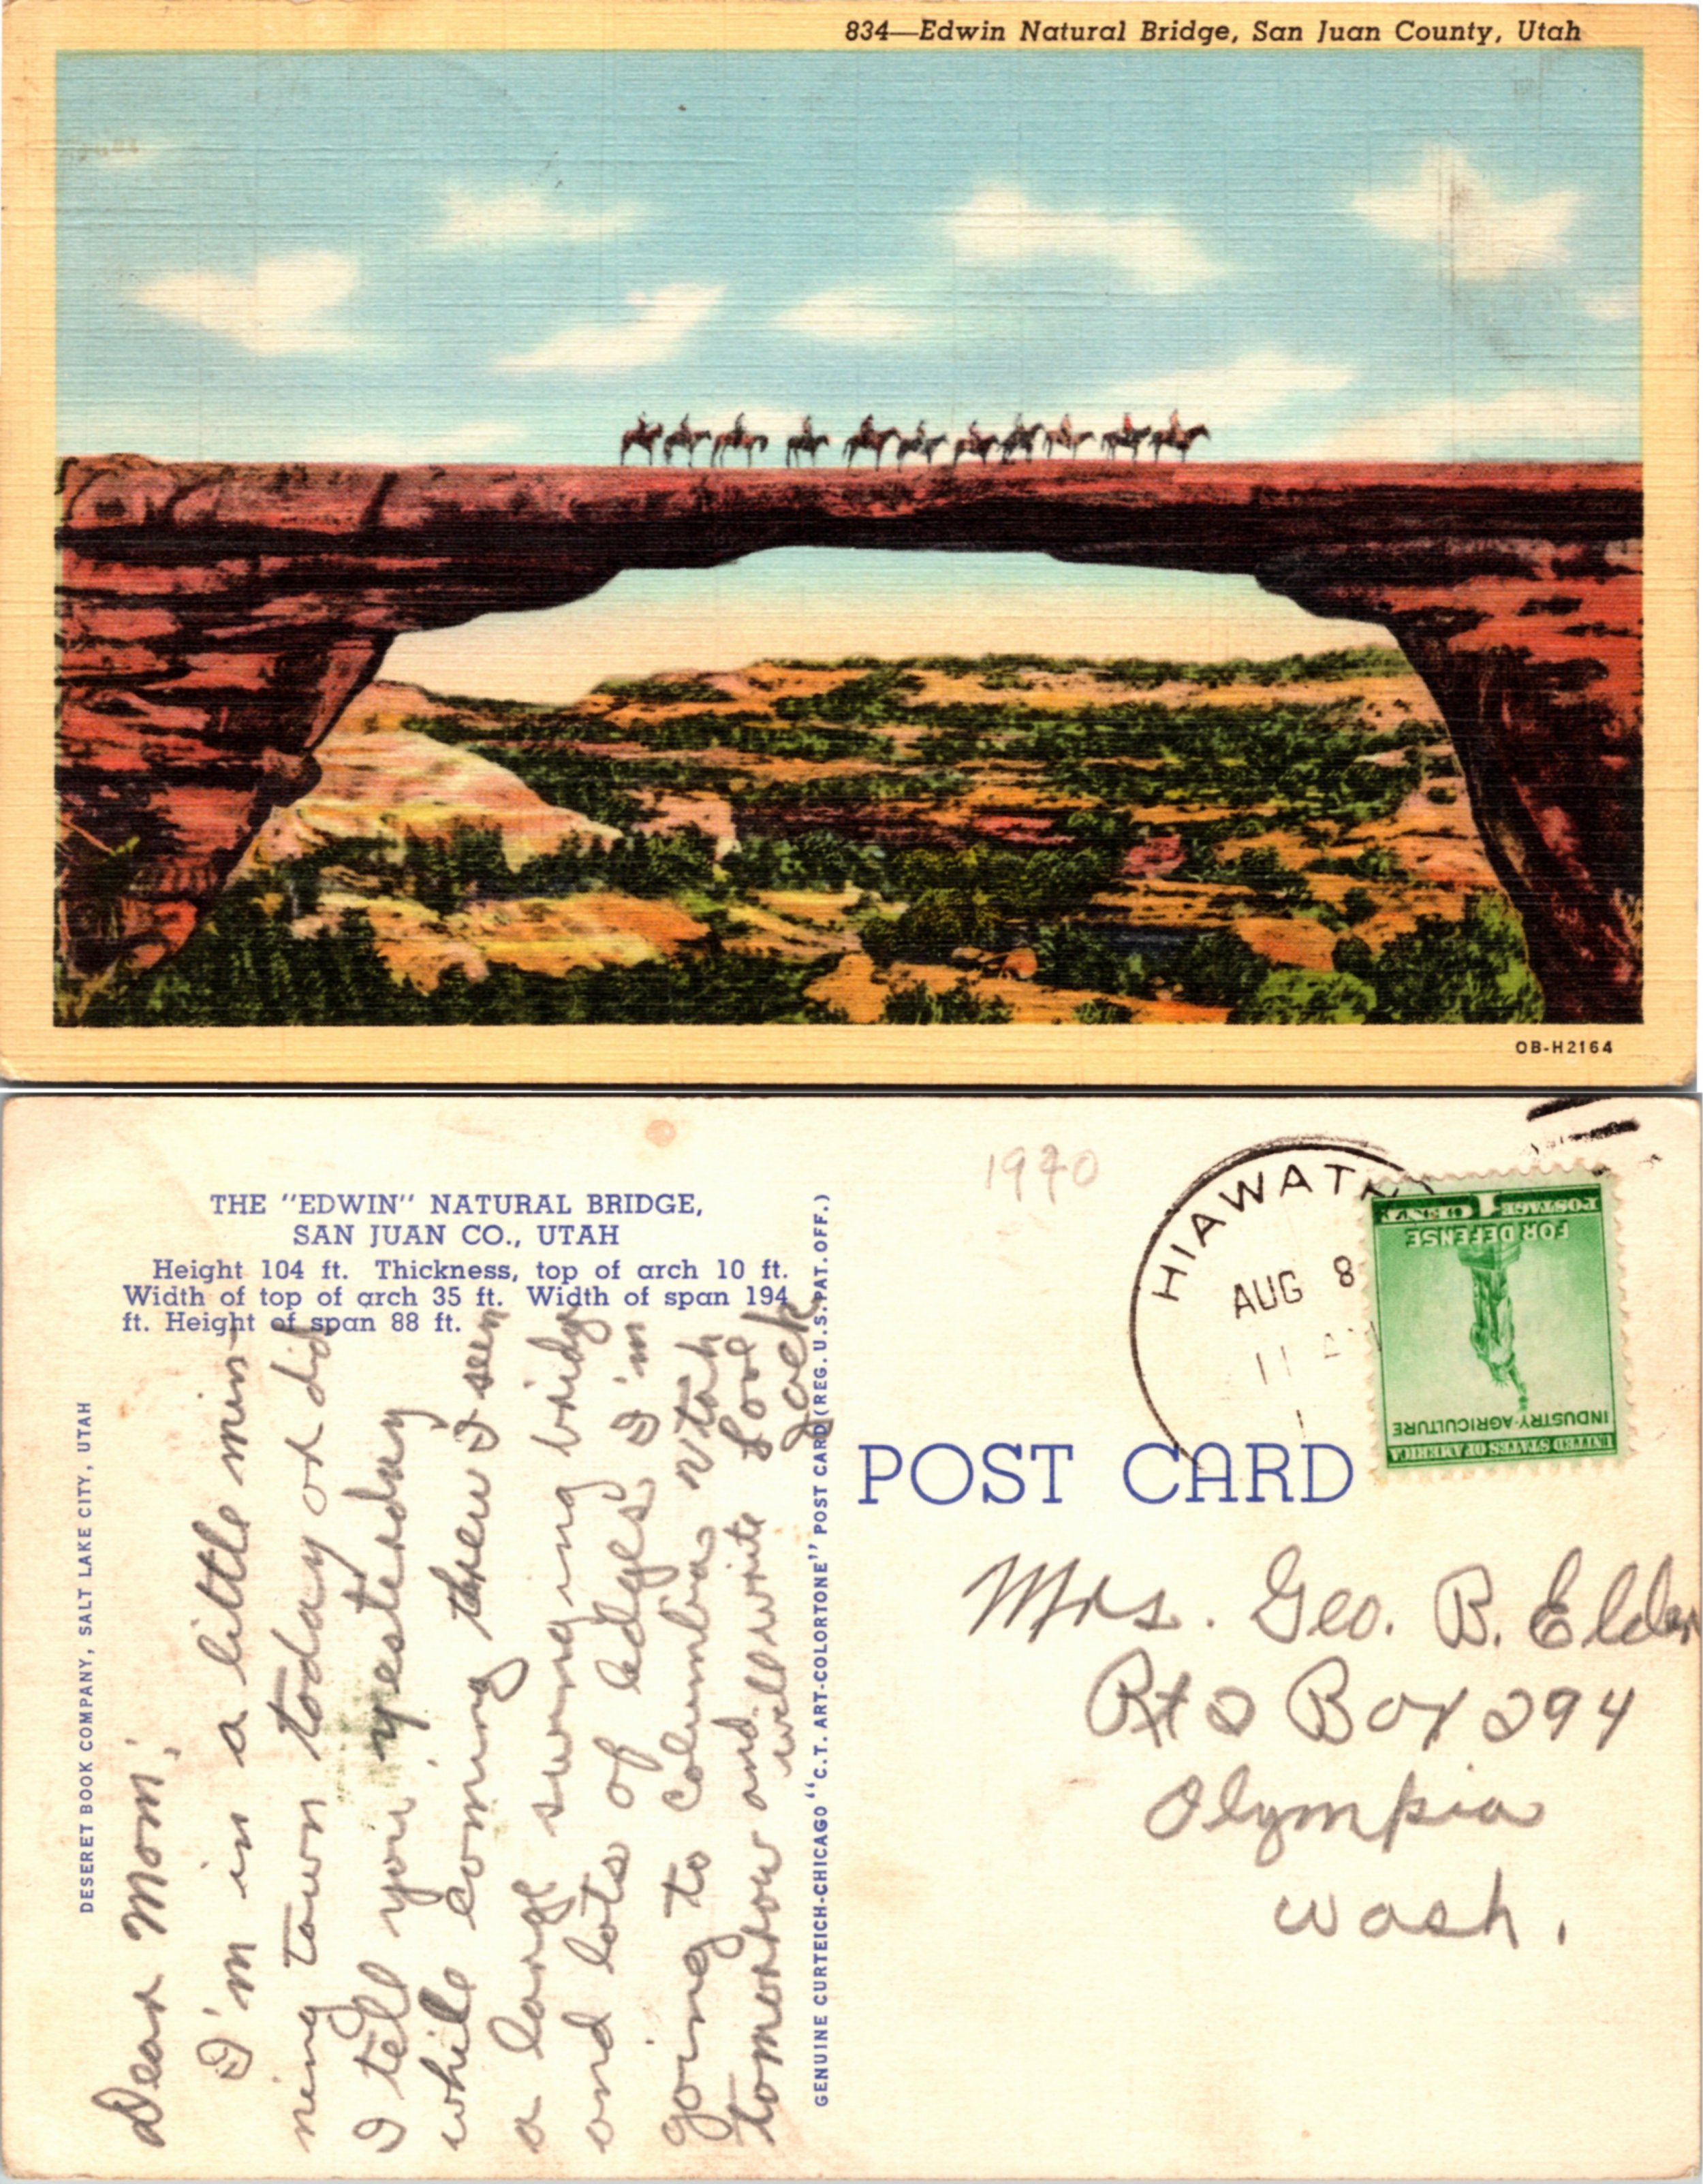 834—Edwin Natural Bridge, San Juan County, Utah
OB-H2164
THE "EDWIN" NATURAL BRIDGE,
SAN JUAN CO., UTAH
Height 104 ft. Thickness, top of arch 10 ft.
Width of top of arch 35 ft. Width of span 194
ft. Height of span 88 ft.
DESERET BOOK COMPANY, SALT LAKE CITY, UTAH
Dear Mom,
I'm in a little min-
ing town today or did
I tell you yesterday
while coming threw I seen
a large swinging bridge
and lots of ledges I'm
going to Columbia Utah
tomorrow and will write
Love
Jack
GENUINE CURTEICH-CHICAGO "C.T. ART-COLORTONE" POST CARD (REG. U.S. PAT. OFF.)
1940
HIAWATH
AUG 8
11 AM
1 CENT 1 POSTAGE
FOR DEFENSE
INDUSTRY-AGRICULTURE
UNITED STATES OF AMERICA
POST CARD
Mrs. Geo. B. Elder
Rt 2 Box 294
Olympia
Wash.